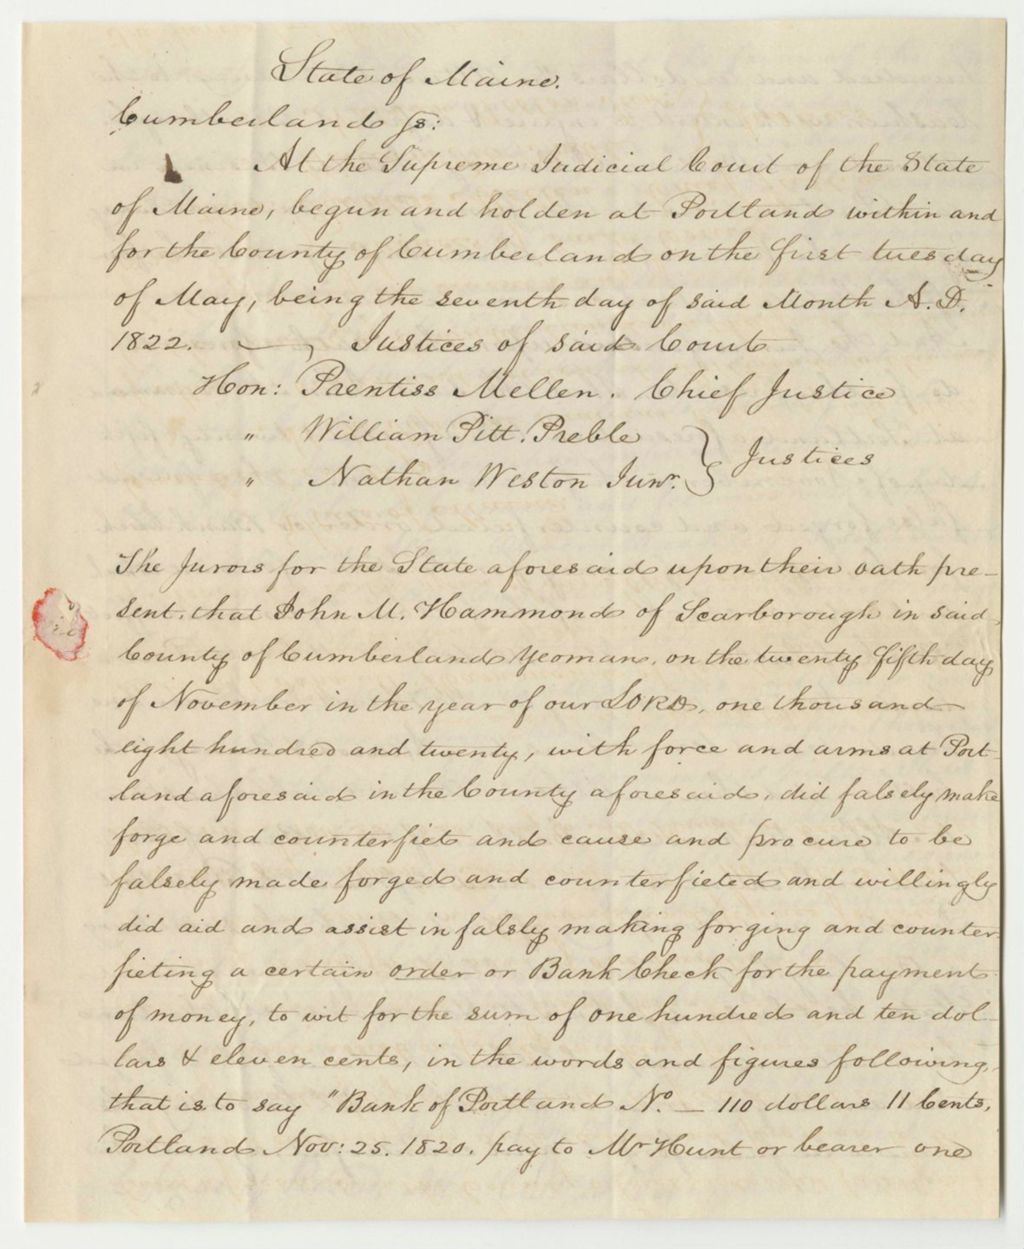 State of Maine.
Cumberland ss:
At the Supreme Judicial Court of the State
of Maine, begun and holden at Portland within and
for the County of Cumberland on the first tuesday
of May, being the seventh day of said Month A. D.
1822. — , Justices of said Court
Hon: Prentiss Mellen. Chief Justice
" William Pitt. Preble } Justices
" Nathan Weston Junr.
The Jurors for the State aforesaid upon their oath pre-
sent, that John M. Hammond of Scarborough in said
County of Cumberland Yeoman, on the twenty fifth day
of November in the year of our LORD, one thousand
eight hundred and twenty, with force and arms at Port-
land aforesaid in the County aforesaid, did falsely make
forge and counterfiet and cause and procure to be
falsely made forged and counterfieted and willingly
did aid and assist in falsly making forging and counter
fieting a certain order or Bank Check for the payment
of money, to wit for the sum of one hundred and ten dol-
lars & eleven cents, in the words and figures following,
that is to say "Bank of Portland No. — 110 dollars 11 Cents,
Portland Nov: 25. 1820. pay to Mr Hunt or bearer one